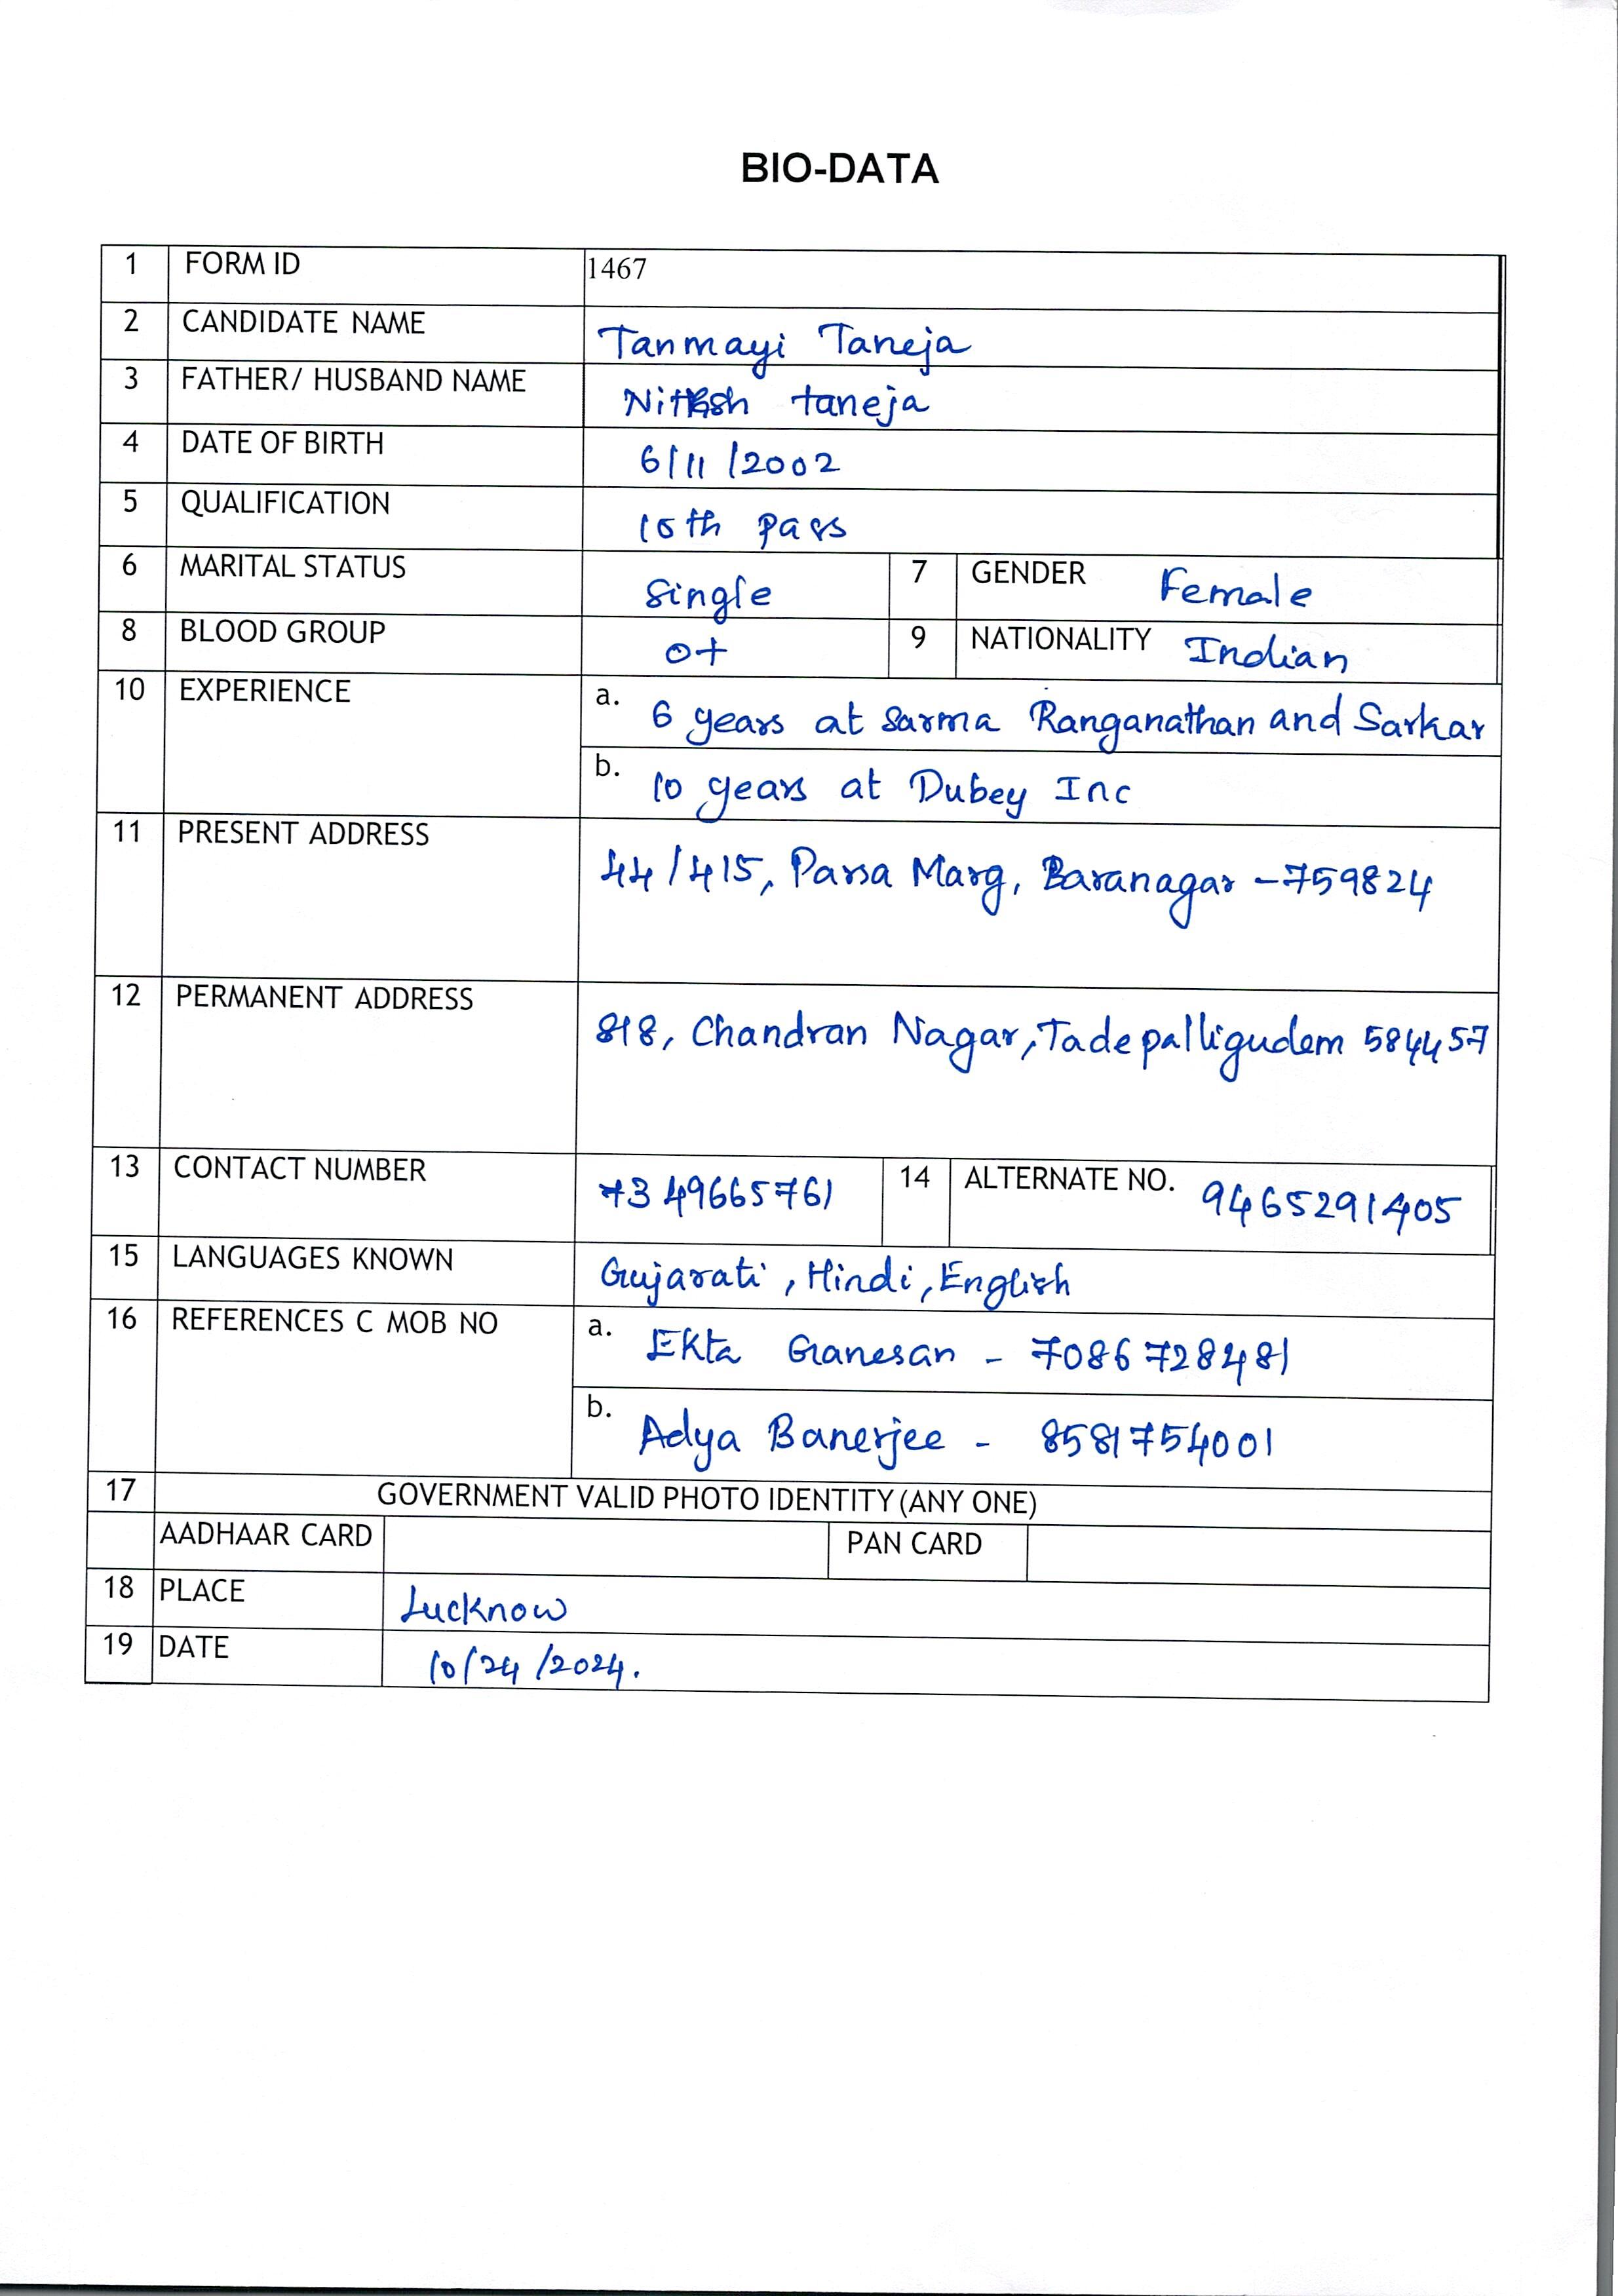 BIO-DATA
1 FORM ID 1467
2 CANDIDATE NAME Tanmayi Taneja
3 FATHER/ HUSBAND NAME taneja
4 DATE OF BIRTH 6/11/2002
5 QUALIFICATION 10th pass
6 MARITAL STATUS Single 7 GENDER Female
8 BLOOD GROUP O+ 9 NATIONALITY Indian
10 EXPERIENCE a. 6 years at Sarma Ranganathan and Sarkar
b. 10 years at Dubey Inc
11 PRESENT ADDRESS 44/415, Parsa Marg, Baranagar -759824
12 PERMANENT ADDRESS 818, Chandran Nagar, Tadepalligudem 584457
13 CONTACT NUMBER 7349665761 14 ALTERNATE NO. 9465291405
15 LANGUAGES KNOWN Gujarati, Hindi, English
16 REFERENCES C MOB NO a. Ekta Ganesan - 7086728481
b. Adya Banerjee - 8581754001
17 GOVERNMENT VALID PHOTO IDENTITY (ANY ONE)
AADHAAR CARD PAN CARD
18 PLACE Lucknow
19 DATE 10/24/2024.